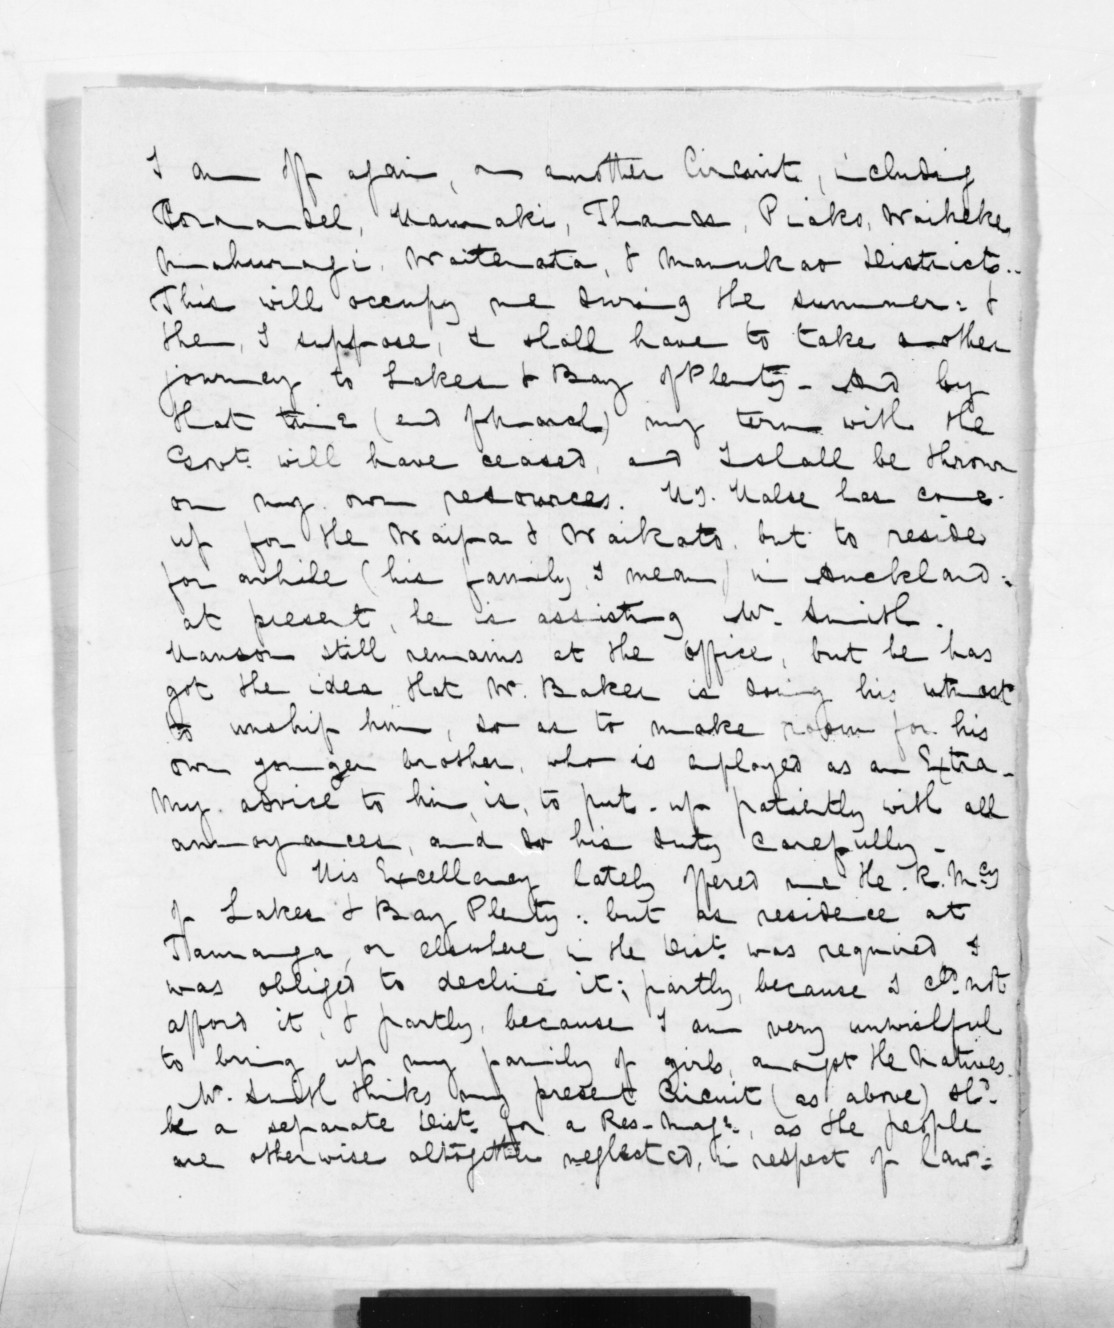 I am off again, on another Circuit, including
Coromandel, Hauraki, Thames, Piako, Waiheke,
Mahurangi, Waitemata, & Manukao Districts..
This will occupy me during the summer: &
then, I suppose, I shall have to take another
journey to Lakes & Bay of Plenty - And by
that time (end of March) my term with the
Govt. will have ceased, and I shall be thrown
on my own resources. Mr. Halse has come
up for the Waipa & Waikato, but to reside
for awhile (his family, I mean) in Auckland:
at present, he is assisting Mr. Smith.
Hanson still remains at the office, but he has
got the idea that Mr. Baker is doing his utmost
to unship him, so as to make room for his
own younger brother, who is employed as an Extra -
My advice to him, is, to put-up patiently with all
annoyances, and do his duty carefully -
His Excellency lately offered me the R. Mcy
of Lakes & Bay Plenty: but as residence at
Tauranga, or elsewhere in the Dist. was required, I
was obliged to decline it; partly, because I cld. not
afford it, & partly, because I am very unwishful
to bring up my family of girls, amongst the Natives.
Mr. Smith thinks my present Circuit (as above) shd.
be a separate Dist. for a Res-Magte., as the people
are otherwise altogether neglected, in respect of law: